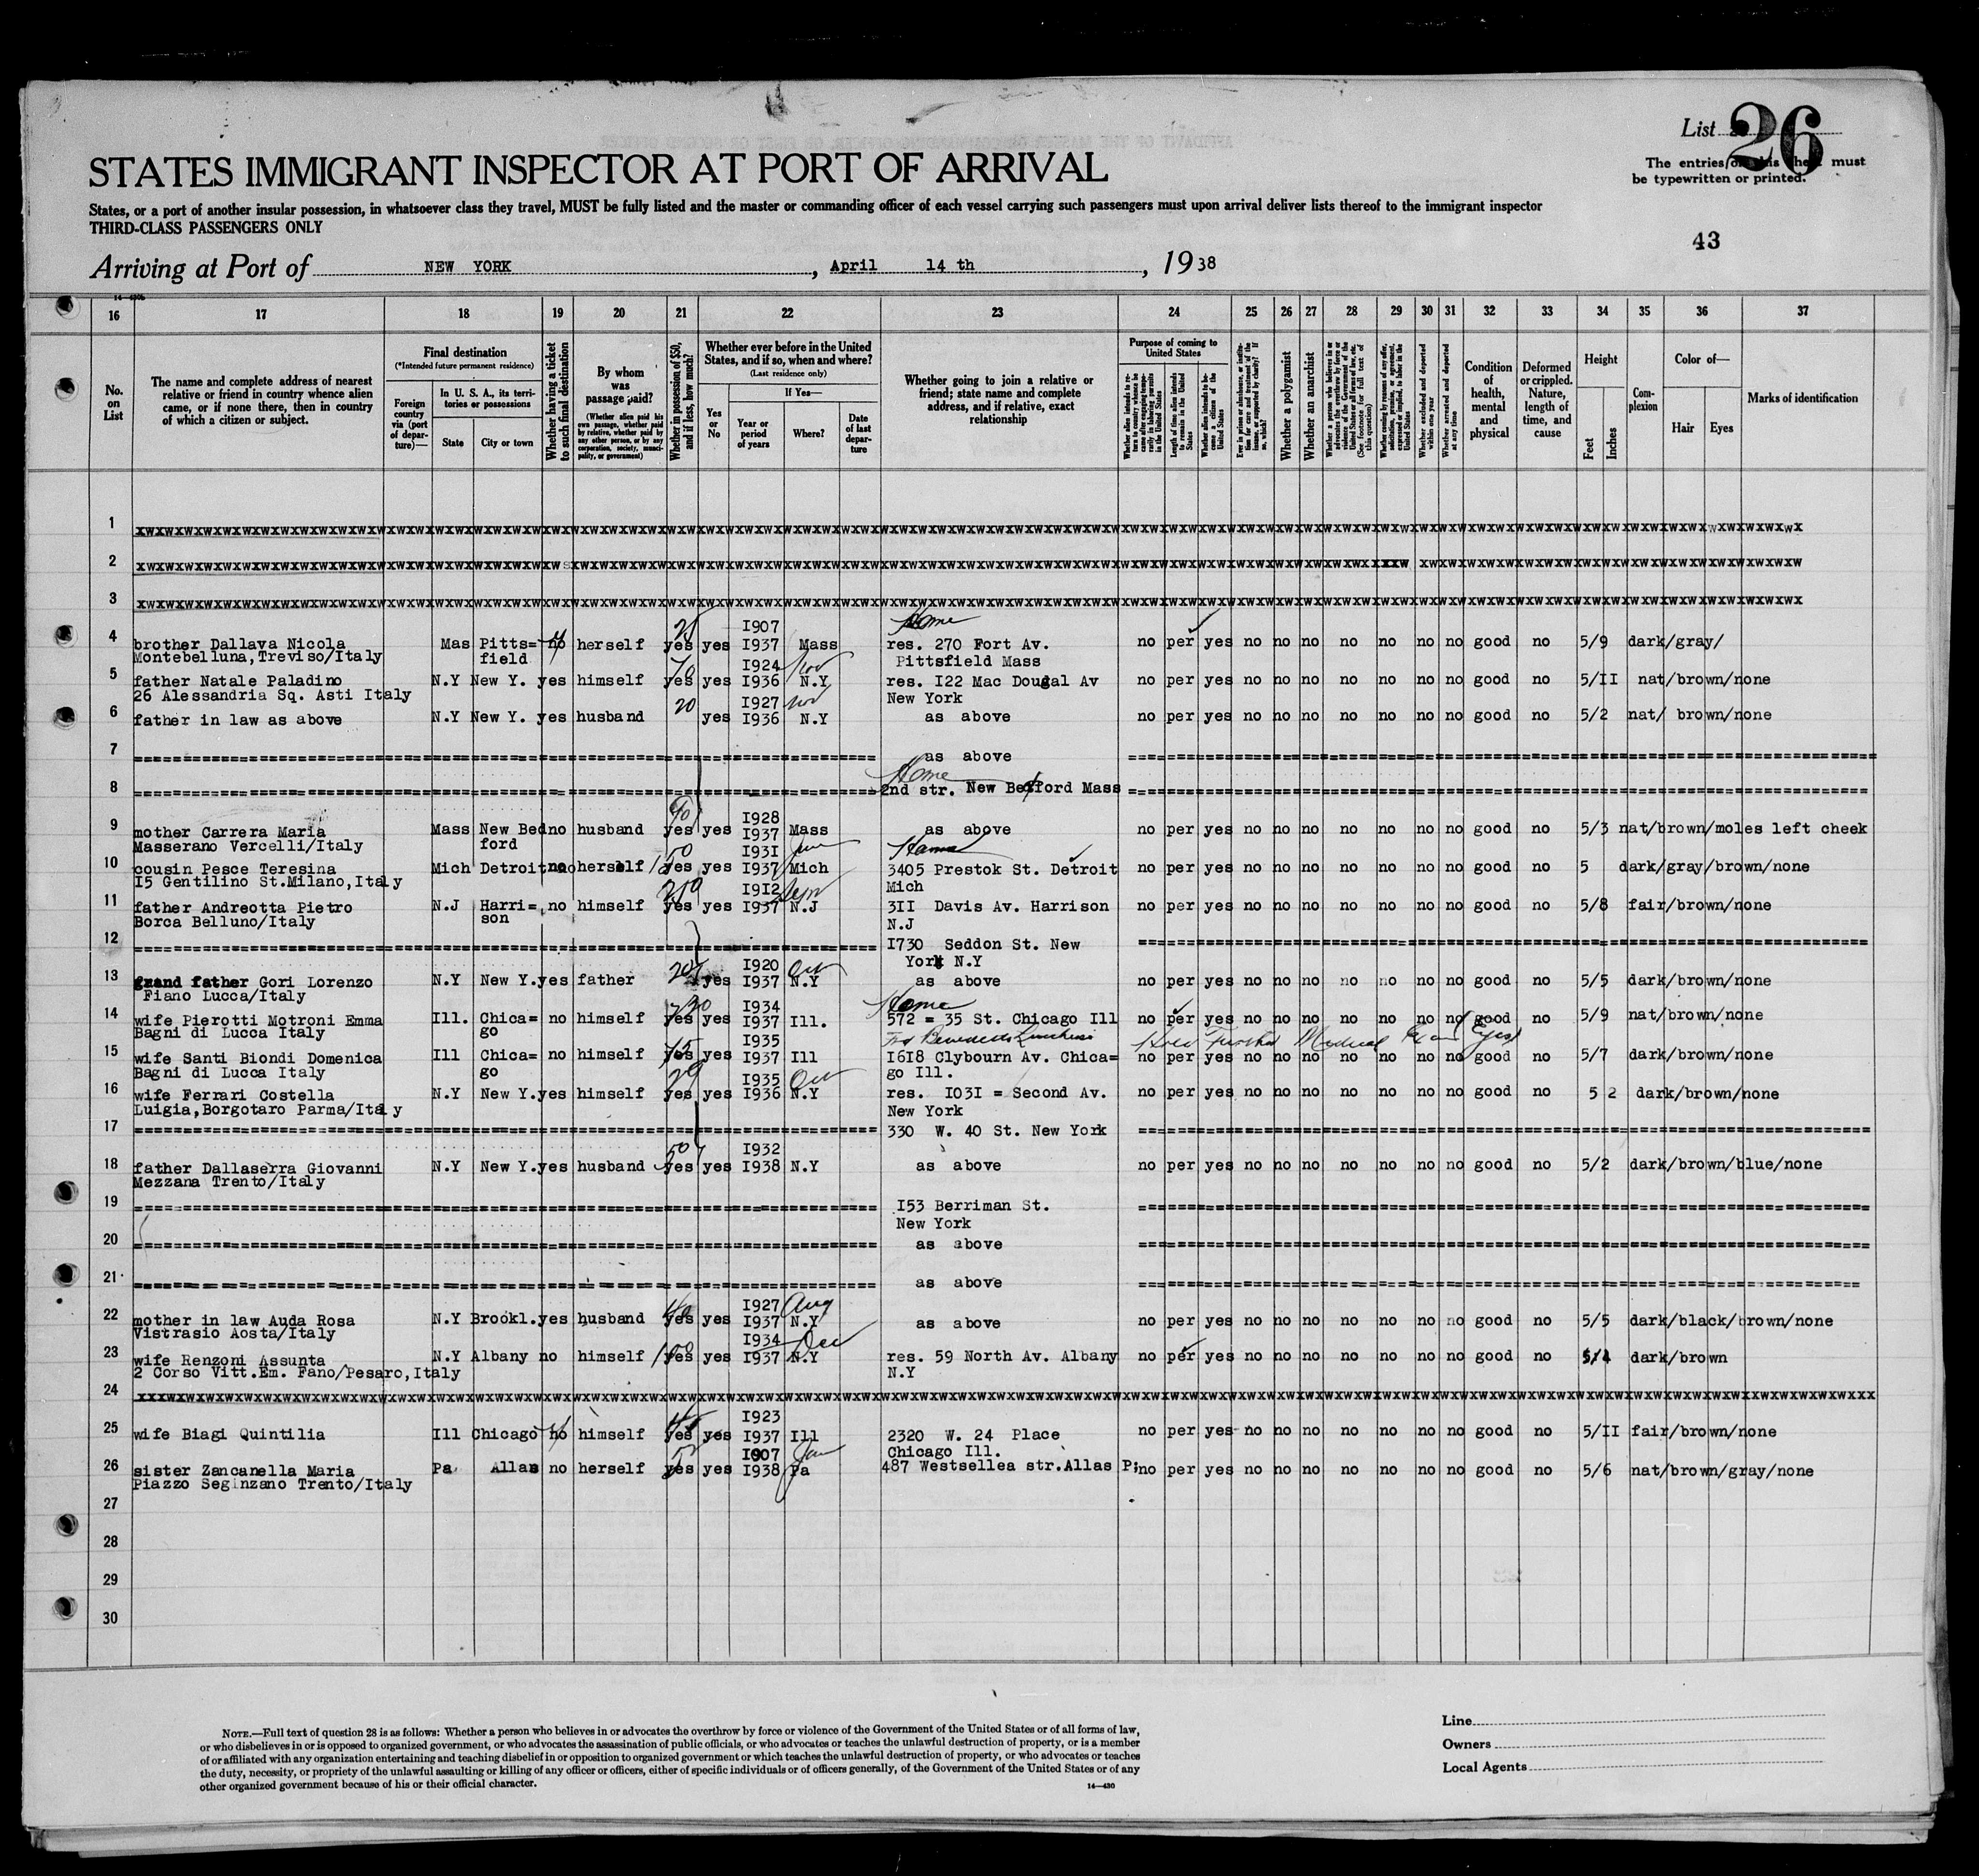 List 26
The entries on this sheet must
be typewritten or printed.
STATES IMMIGRANT INSPECTOR AT PORT OF ARRIVAL
States, or a port of another insular possession, in whatsoever class they travel, MUST be fully listed and the master or commanding officer of each vessel carrying such passengers must upon arrival deliver lists thereof to the immigrant inspector
THIRD-CLASS PASSENGERS ONLY
43
Arriving at Port of NEW YORK, April 14 th, 1938
16 17 18 19 20 21 22 23 24 25 26 27 28 29 30 31 32 33 34 35 36 37
No. on List
The name and complete address of nearest relative or friend in country whence alien came, or if none there, then in country of which a citizen or subject.
Final destination
(*Intended future permanent residence)
Foreign country via (port of departure)—
In U. S. A., its territories or possessions
State City or town
Whether having a ticket to such final destination
By whom was passage paid?
(Whether alien paid his own passage, whether paid by relative, whether paid by any other person, or by any corporation, society, municipality, or government)
Whether in possession of $50, and if less, how much?
Whether ever before in the United States, and if so, when and where?
(Last residence only)
Yes or No
If Yes—
Year or period of years
Where?
Date of last departure
Whether going to join a relative or friend; state name and complete address, and if relative, exact relationship
Purpose of coming to United States
Length of time alien intends to remain in the United States
Whether alien intends to become a citizen of the United States
Whether a polygamist
Whether an anarchist
Whether excluded and deported within one year
Whether arrested and deported at any time
Condition of health, mental and physical
Deformed or crippled. Nature, length of time, and cause
Height
Feet Inches
Complexion
Color of—
Hair Eyes
Marks of identification
1
2
3
Home
I907
4 brother Dallava Nicola Mas Pitts= no herself yes yes I937 Mass res. 270 Fort Av. no per yes no no no no no no no good no 5/9 dark/gray/
Montebelluna,Treviso/Italy field I924 Nov Pittsfield Mass
5 father Natale Paladino N.Y New Y. yes himself 70 yes yes I936 N.Y res. I22 Mac Dougal Av no per yes no no no no no no no good no 5/II nat/brown/none
26 Alessandria Sq. Asti Italy 20 I927 Nov New York
6 father in law as above N.Y New Y. yes husband yes I936 N.Y as above no per yes no no no no no no no good no 5/2 nat/ brown/none
7 as above
Home
8 2nd str. New Bedford Mass
I928
9 mother Carrera Maria Mass New Bed no husband yes yes I937 Mass as above no per yes no no no no no no no good no 5/3 nat/brown/moles left cheek
Masserano Vercelli/Italy ford I93I Home
10 cousin Pesce Teresina Mich Detroit no herself yes yes I937 Mich 3405 Prestok St. Detroit no per yes no no no no no no no good no 5 dark/gray/brown/none
I5 Gentilino St.Milano,Italy I9I2 Mich
11 father Andreotta Pietro N.J Harri= no himself yes yes I937 N.J 3II Davis Av. Harrison no per yes no no no no no no no good no 5/8 fair/brown/none
Borca Belluno/Italy son N.J
12 I730 Seddon St. New
York N.Y
I920 Oct
13 grand father Gori Lorenzo N.Y New Y.yes father yes I937 N.Y as above no per yes no no no no no no no good no 5/5 dark/brown/none
Fiano Lucca/Italy I934 Home
14 wife Pierotti Motroni Emma Ill. Chica= no himself yes yes I937 Ill. 572 = 35 St. Chicago Ill no per yes no no no no no no no good no 5/9 nat/brown/none
Bagni di Lucca Italy go I935 Hold Further Medical Exam (Eyes)
15 wife Santi Biondi Domenica Ill Chica= no himself yes yes I937 Ill I6I8 Clybourn Av. Chica= no per yes no no no no no no no good no 5/7 dark/brown/none
Bagni di Lucca Italy go I935 Oct go Ill.
16 wife Ferrari Costella N.Y New Y.yes himself yes yes I936 N.Y res. I03I = Second Av. no per yes no no no no no no no good no 5 2 dark/brown/none
Luigia,Borgotaro Parma/Italy New York
17 330 W. 40 St. New York
50 I932
18 father Dallaserra Giovanni N.Y New Y.yes husband yes yes I938 N.Y as above no per yes no no no no no no no good no 5/2 dark/brown/blue/none
Mezzana Trento/Italy
19 I53 Berriman St.
New York
20 as above
21 as above
I927 Aug
22 mother in law Auda Rosa N.Y Brookl.yes husband yes yes I937 N.Y as above no per yes no no no no no no no good no 5/5 dark/black/brown/none
Vistrasio Aosta/Italy I934 Dec
23 wife Renzoni Assunta N.Y Albany no himself yes yes I937 N.Y res. 59 North Av. Albany no per yes no no no no no no no good no 5/4 dark/brown
2 Corso Vitt.Em. Fano/Pesaro,Italy N.Y
24
I923
25 wife Biagi Quintilia Ill Chicago no himself yes yes I937 Ill 2320 W. 24 Place no per yes no no no no no no no good no 5/II fair/brown/none
I907 Jan Chicago Ill.
26 sister Zancanella Maria Pa Allan no herself yes yes I938 Pa 487 Westsellea str.Allas P; no per yes no no no no no no no good no 5/6 nat/brown/gray/none
Piazzo Seginzano Trento/Italy
27
28
29
30
NOTE.—Full text of question 28 is as follows: Whether a person who believes in or advocates the overthrow by force or violence of the Government of the United States or of all forms of law,
or who disbelieves in or is opposed to organized government, or who advocates the assassination of public officials, or who advocates or teaches the unlawful destruction of property, or is a member
of or affiliated with any organization entertaining and teaching disbelief in or opposition to organized government or which teaches the unlawful destruction of property, or who advocates or teaches
the duty, necessity, or propriety of the unlawful assaulting or killing of any officer or officers, either of specific individuals or of officers generally, of the Government of the United States or of any
other organized government because of his or their official character.
14—430
Line
Owners
Local Agents